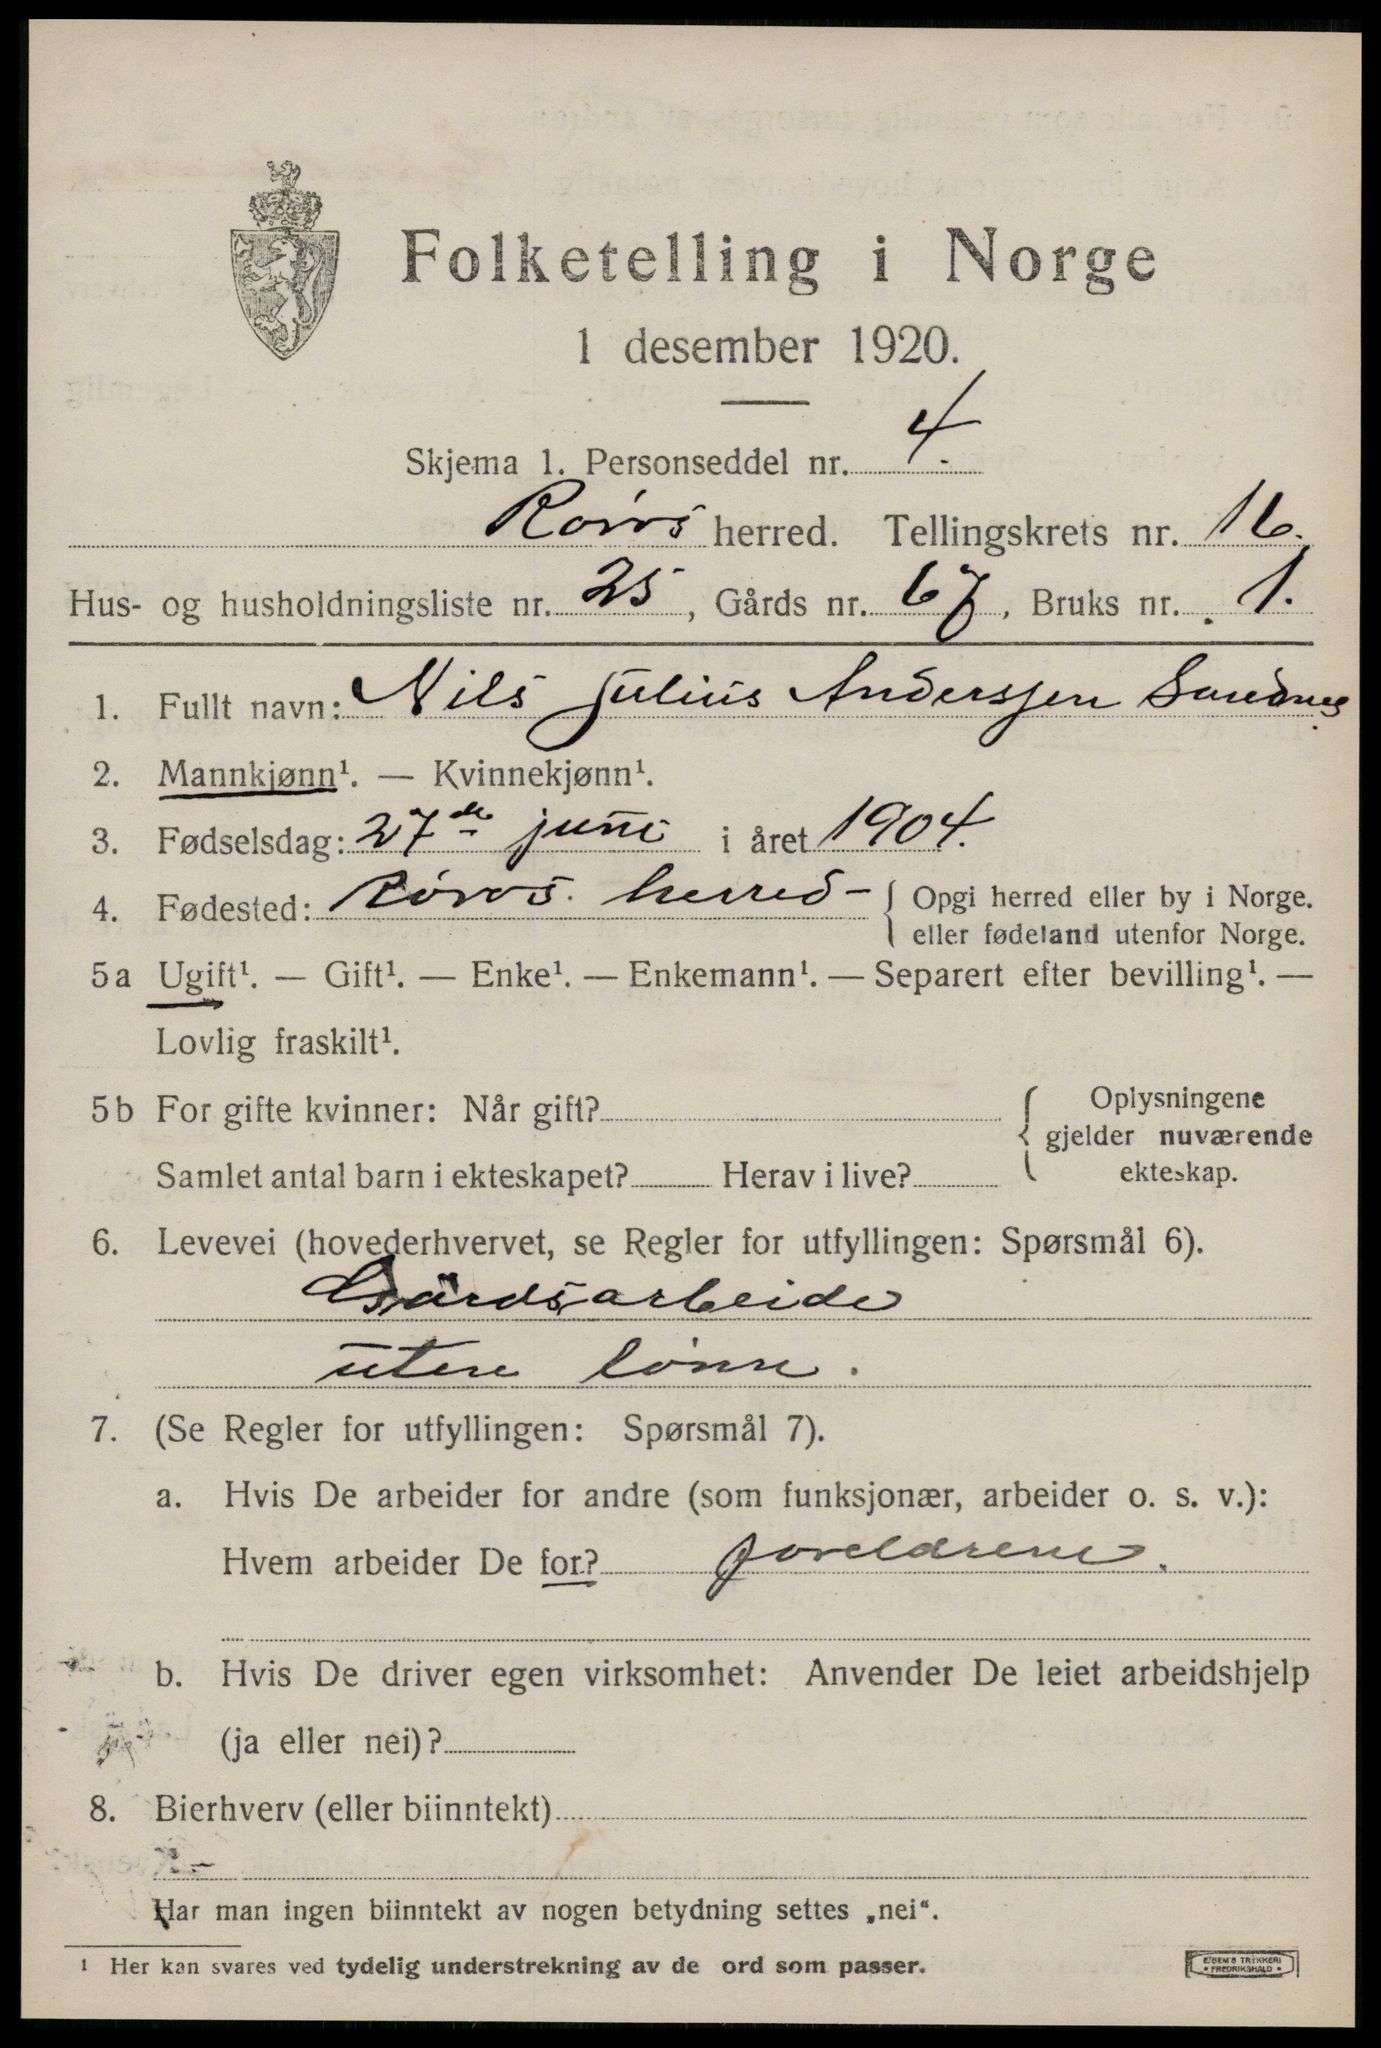 Folketelling i Norge
1 desember 1920.
Skjema 1. Personseddel nr. 4.
Røros herred. Tellingskrets nr. 16.
Hus- og husholdningsliste nr. 25, Gårds nr. 67, Bruks nr. 1.
1. Fullt navn: Nils Julius Anderssen Sandnes
2. Mannkjønn¹. — Kvinnekjønn¹.
3. Fødselsdag: 27de juni i året 1904.
4. Fødested: Røros herred – { Opgi herred eller by i Norge.
eller fødeland utenfor Norge.
5a Ugift¹. — Gift¹. — Enke¹. — Enkemann¹. — Separert efter bevilling¹. —
Lovlig fraskilt¹.
5b For gifte kvinner: Når gift? { Oplysningene
gjelder nuværende
Samlet antal barn i ekteskapet? Herav i live? ekteskap.
6. Levevei (hovederhvervet, se Regler for utfyllingen: Spørsmål 6).
Gårdsarbeide
uten lønn.
7. (Se Regler for utfyllingen: Spørsmål 7).
a. Hvis De arbeider for andre (som funksjonær, arbeider o. s. v.):
Hvem arbeider De for? foreldrene.
b. Hvis De driver egen virksomhet: Anvender De leiet arbeidshjelp
(ja eller nei)?
8. Bierhverv (eller biinntekt)
Har man ingen biinntekt av nogen betydning settes „nei“.
¹ Her kan svares ved tydelig understrekning av de ord som passer.
E. SEM'S TRYKKERI
• FREDRIKSHALD •